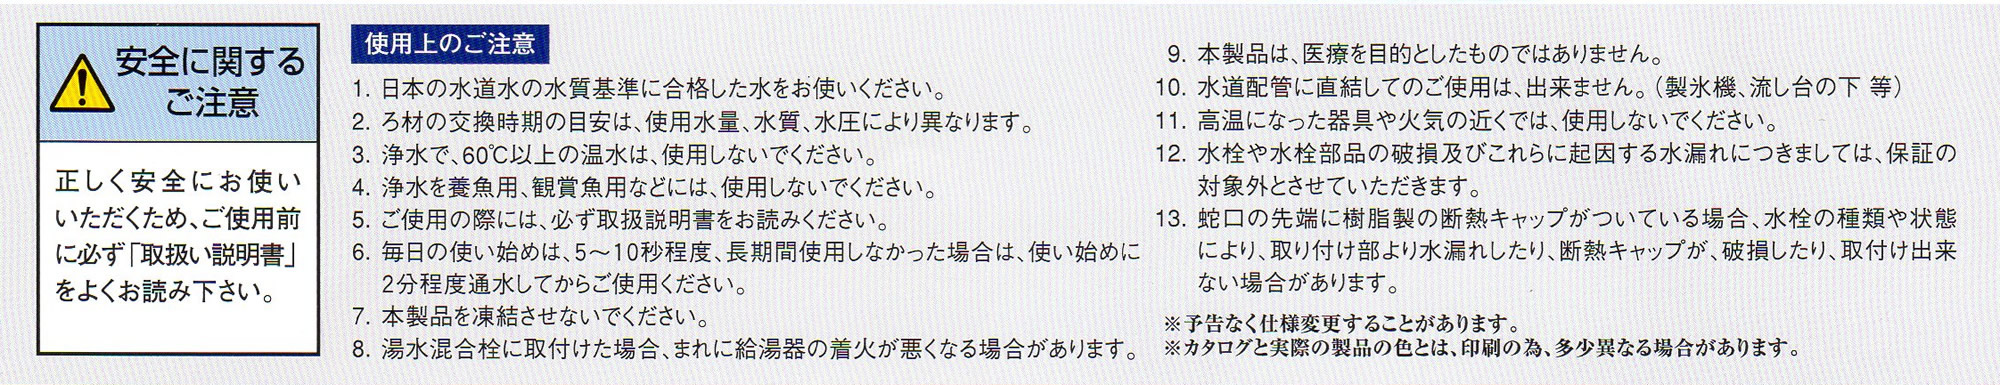 安全に関する
ご注意
正しく安全にお使い
いただくため、ご使用前
に必ず「取扱い説明書」
をよくお読み下さい。
使用上のご注意
1. 日本の水道水の水質基準に合格した水をお使いください。
2. ろ材の交換時期の目安は、使用水量、水質、水圧により異なります。
3. 浄水で、60℃以上の温水は、使用しないでください。
4. 浄水を養魚用、観賞魚用などには、使用しないでください。
5. ご使用の際には、必ず取扱説明書をお読みください。
6. 毎日の使い始めは、5～10秒程度、長期間使用しなかった場合は、使い始めに
2分程度通水してからご使用ください。
7. 本製品を凍結させないでください。
8. 湯水混合栓に取付けた場合、まれに給湯器の着火が悪くなる場合があります。
9. 本製品は、医療を目的としたものではありません。
10. 水道配管に直結してのご使用は、出来ません。（製氷機、流し台の下 等）
11. 高温になった器具や火気の近くでは、使用しないでください。
12. 水栓や水栓部品の破損及びこれらに起因する水漏れにつきましては、保証の
対象外とさせていただきます。
13. 蛇口の先端に樹脂製の断熱キャップがついている場合、水栓の種類や状態
により、取り付け部より水漏れしたり、断熱キャップが、破損したり、取付け出来
ない場合があります。
※予告なく仕様変更することがあります。
※カタログと実際の製品の色とは、印刷の為、多少異なる場合があります。